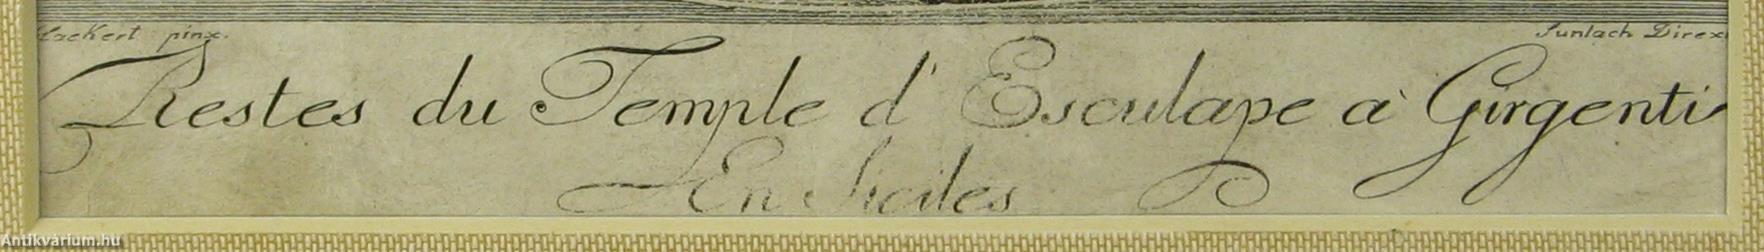 Hackert pinx. Junlach Direx
Restes du Temple d'Esculape à Girgenti
En Siciles
Antikvárium.hu